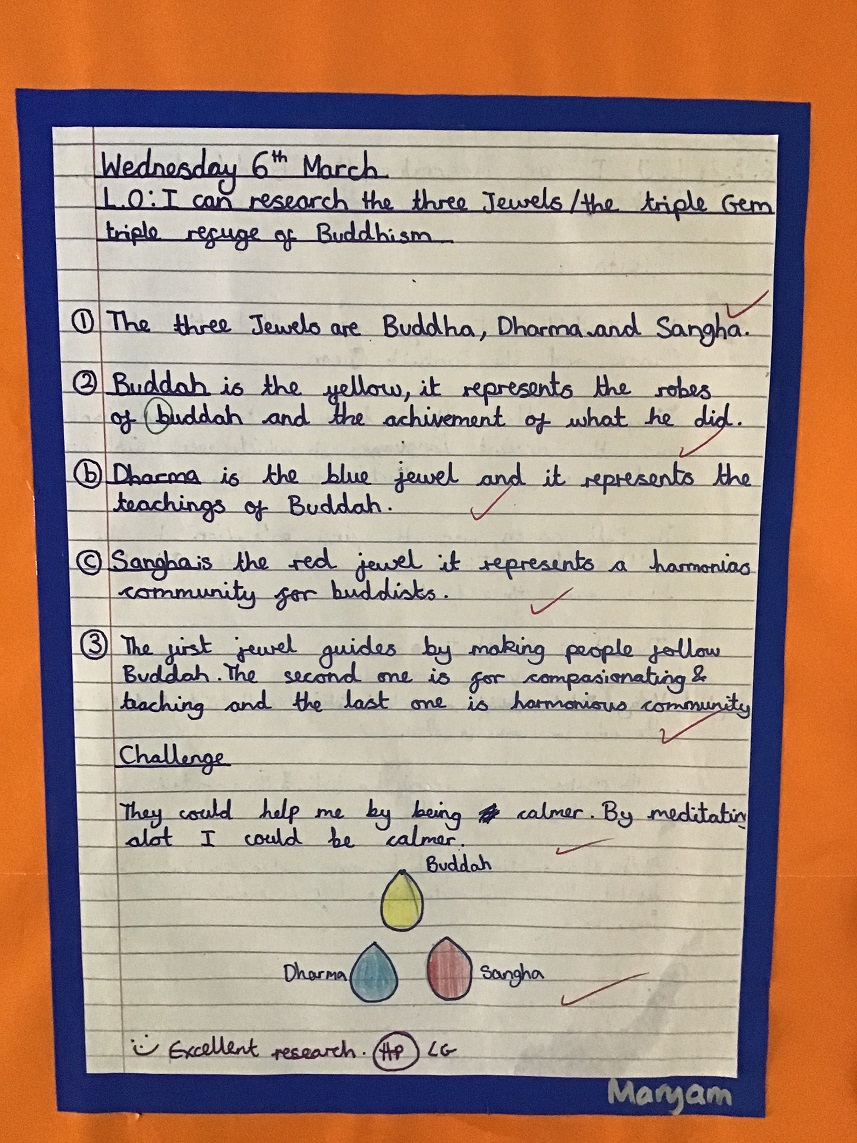 Wednesday 6th March
L.O: I can research the three Jewels/the triple Gem
triple refuge of Buddhism
① The three Jewels are Buddha, Dharma and Sangha.
② Buddah is the yellow, it represents the robes
of buddah and the achivement of what he did.
ⓑ Dharma is the blue jewel and it represents the
teachings of Buddah.
ⓒ Sangha is the red jewel it represents a harmonias
community for buddists.
③ The first jewel guides by making people follow
Buddah. The second one is for compasionating &
teaching and the last one is harmonious community
Challenge
They could help me by being calmer. By meditatin
alot I could be calmer.
Buddah
Dharma
Sangha
Excellent research. HP LG
Maryam